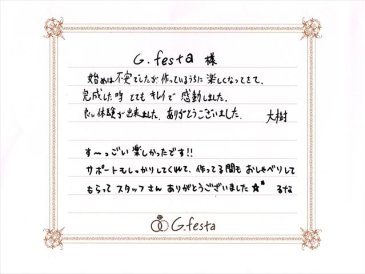 G.festa 様
始めは不安でしたが作っているうちに楽しくなってきて、
完成した時とてもキレイで感動しました。
良い体験が出来ました。ありがとうございました。 大樹
す〜っごい楽しかったです!!
サポートもしっかりしてくれて、作ってる間もおしゃべりして
もらってスタッフさんありがとうございました☆* るな
G.festa